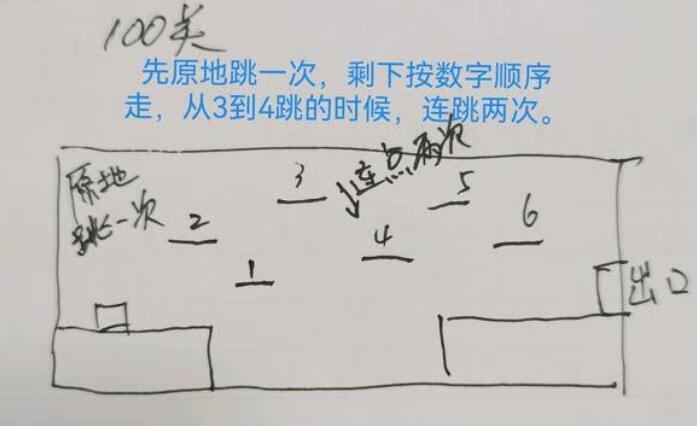 100关
先原地跳一次，剩下按数字顺序
走，从3到4跳的时候，连跳两次。
原地
跳一次
连点两次
3
5
2
4
6
1
出口